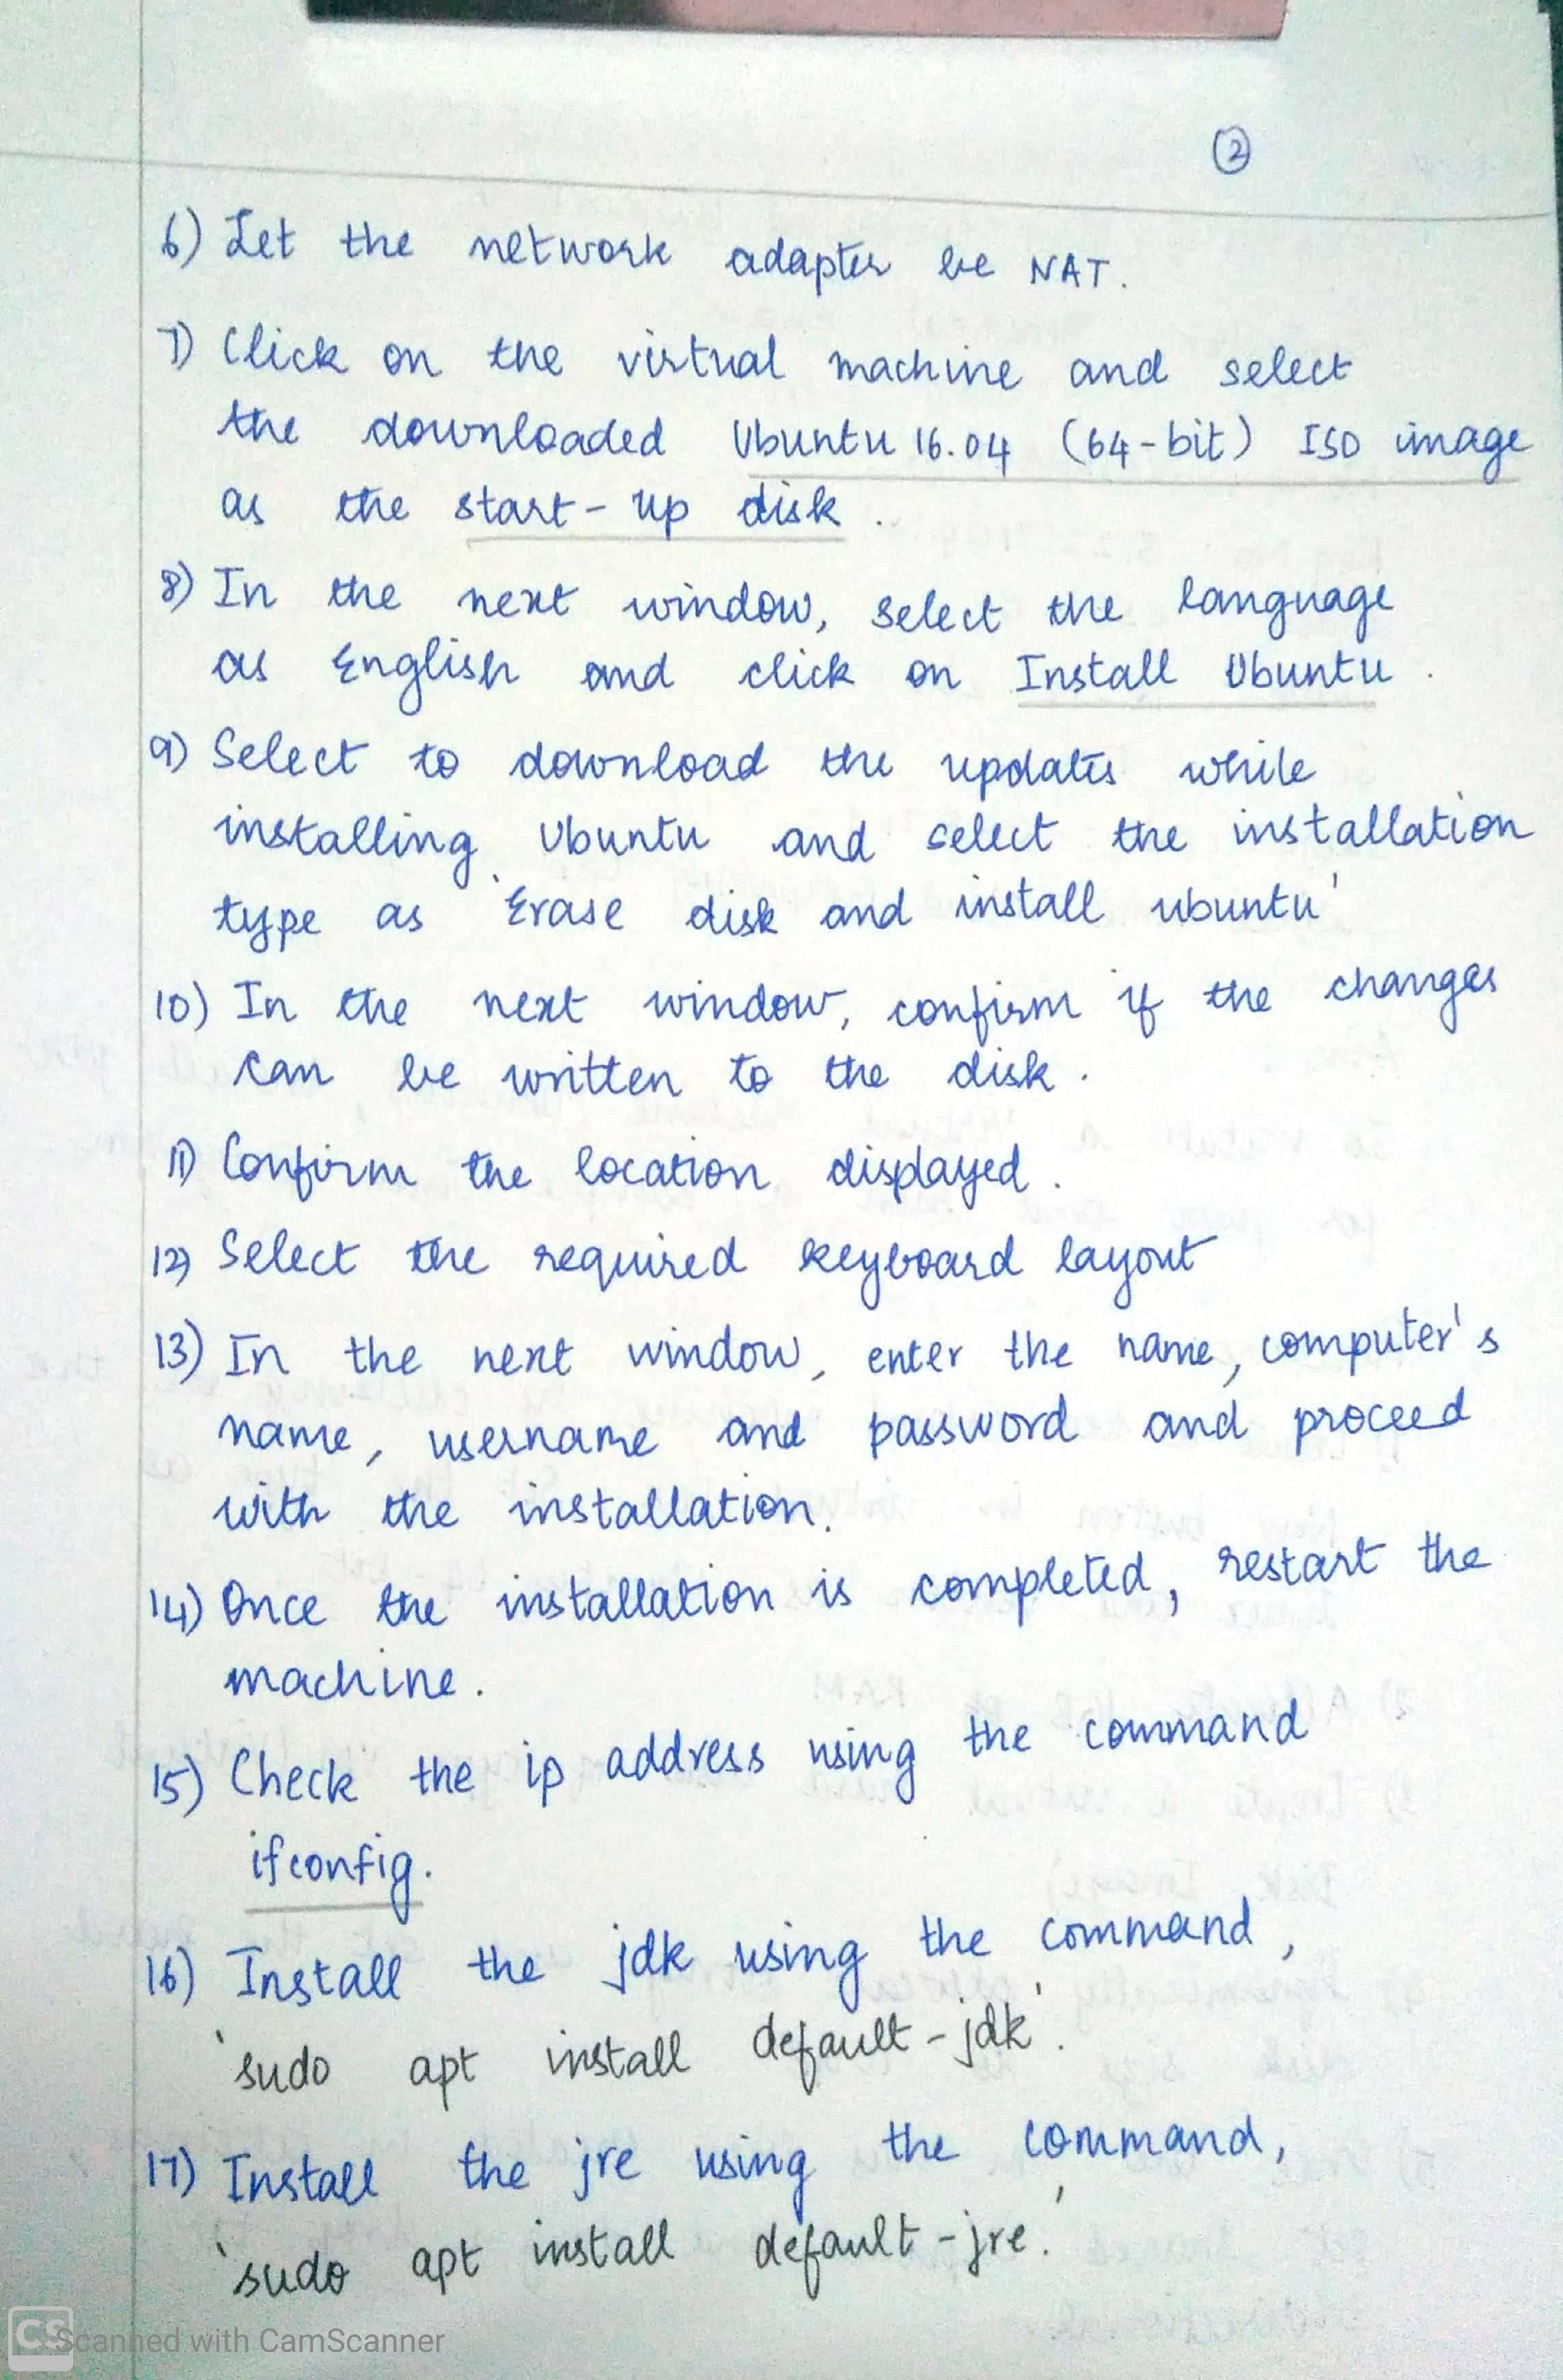 2
6) Let the network adapter be NAT.
7) Click on the virtual machine and select
the downloaded Ubuntu 16.04 (64-bit) ISO image
as the start-up disk.
8) In the next window, select the language
as English and click on Install Ubuntu.
9) Select to download the updates while
installing Ubuntu and select the installation
type as 'Erase disk and install ubuntu'
10) In the next window, confirm if the changes
can be written to the disk.
11) Confirm the location displayed.
12) Select the required keyboard layout
13) In the next window, enter the name, computer's
name, username and password and proceed
with the installation.
14) Once the installation is completed, restart the
machine.
15) Check the ip address using the command
ifconfig.
16) Install the jdk using the command,
'sudo apt install default-jdk'.
17) Install the jre using the command,
'sudo apt install default-jre.'
CS Scanned with CamScanner